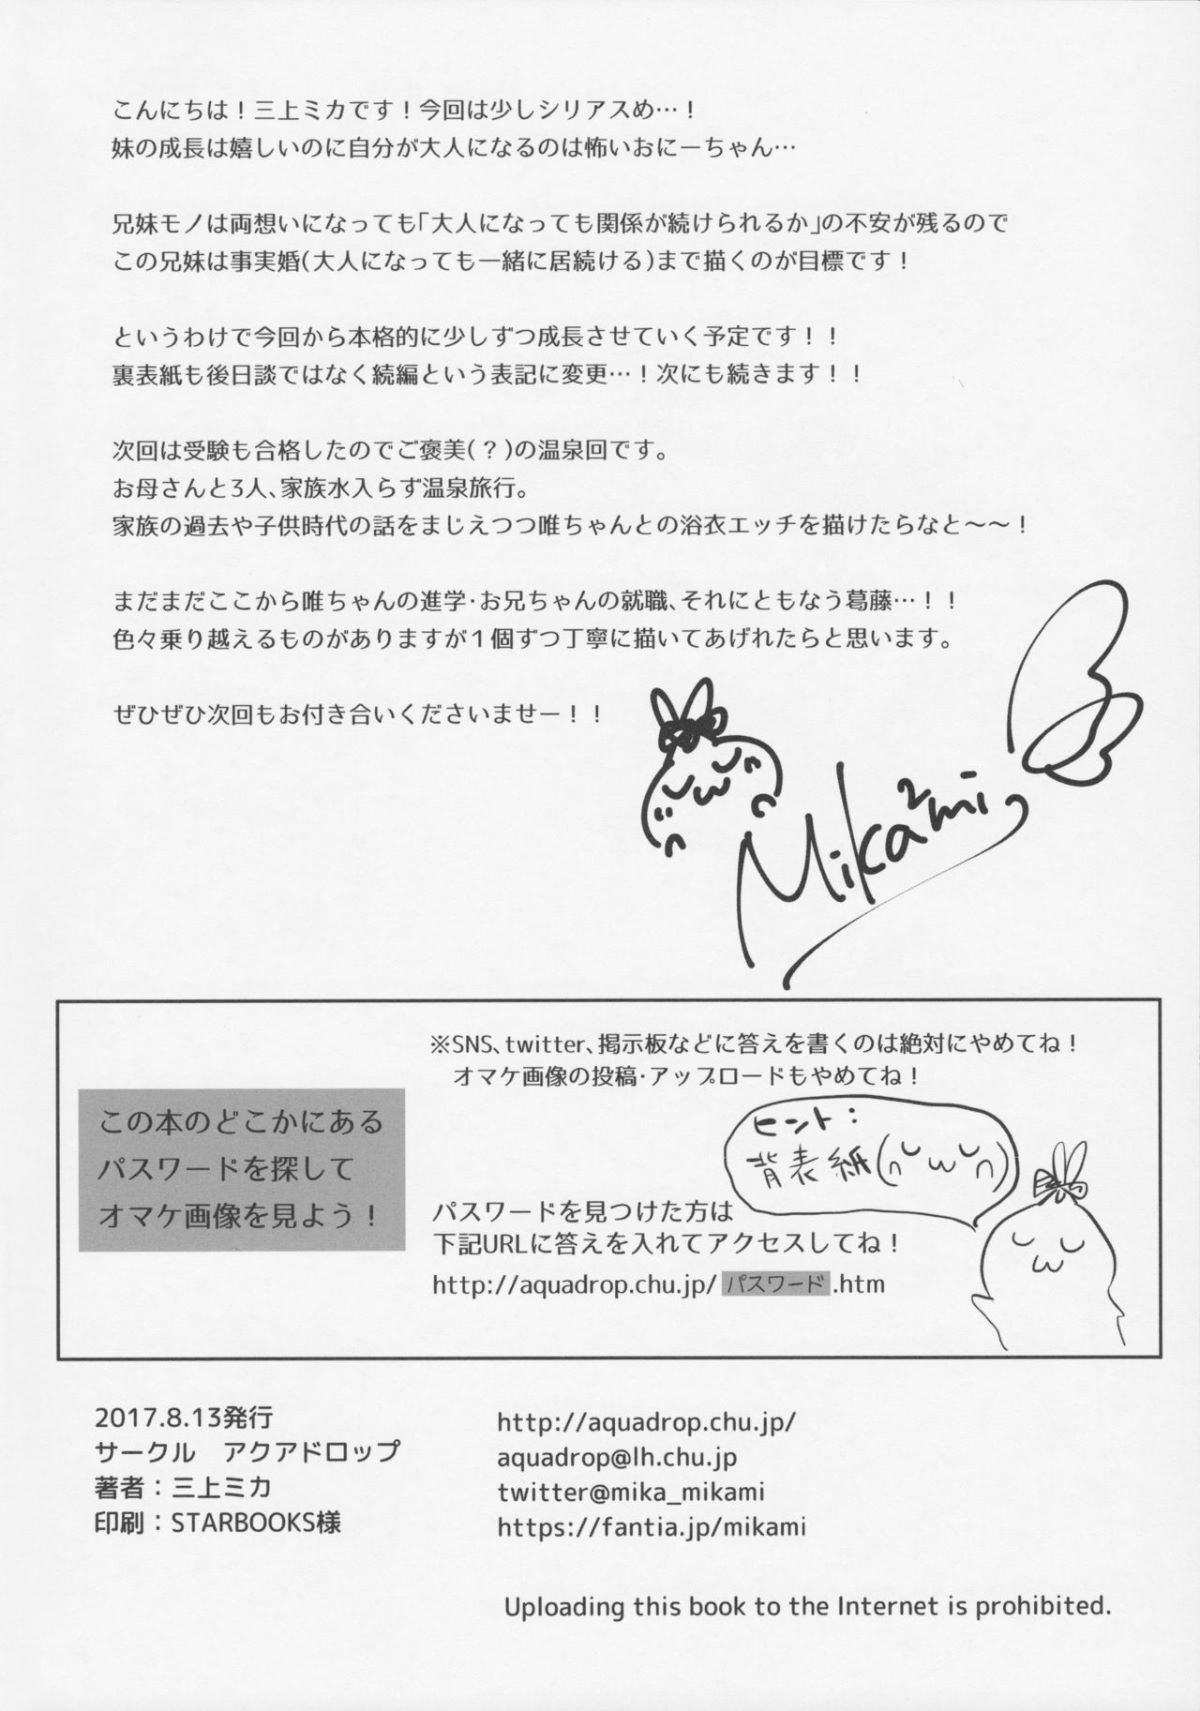 こんにちは！三上ミカです！今回は少しシリアスめ…！
妹の成長は嬉しいのに自分が大人になるのは怖いおにーちゃん…
兄妹モノは両想いになっても「大人になっても関係が続けられるか」の不安が残るので
この兄妹は事実婚(大人になっても一緒に居続ける)まで描くのが目標です！
というわけで今回から本格的に少しずつ成長させていく予定です！！
裏表紙も後日談ではなく続編という表記に変更…！次にも続きます！！
次回は受験も合格したのでご褒美(？)の温泉回です。
お母さんと3人、家族水入らず温泉旅行。
家族の過去や子供時代の話をまじえつつ唯ちゃんとの浴衣エッチを描けたらなと～～！
まだまだここから唯ちゃんの進学・お兄ちゃんの就職、それにともなう葛藤…！！
色々乗り越えるものがありますが１個ずつ丁寧に描いてあげれたらと思います。
ぜひぜひ次回もお付き合いくださいませー！！
Mika2mi
※SNS、twitter、掲示板などに答えを書くのは絶対にやめてね！
オマケ画像の投稿・アップロードもやめてね！
この本のどこかにある
パスワードを探して
オマケ画像を見よう！
ヒント：
背表紙(∩˘ω˘∩)
パスワードを見つけた方は
下記URLに答えを入れてアクセスしてね！
http://aquadrop.chu.jp/パスワード.htm
2017.8.13発行
サークル　アクアドロップ
著者：三上ミカ
印刷：STARBOOKS様
http://aquadrop.chu.jp/
aquadrop@lh.chu.jp
twitter@mika_mikami
https://fantia.jp/mikami
Uploading this book to the Internet is prohibited.